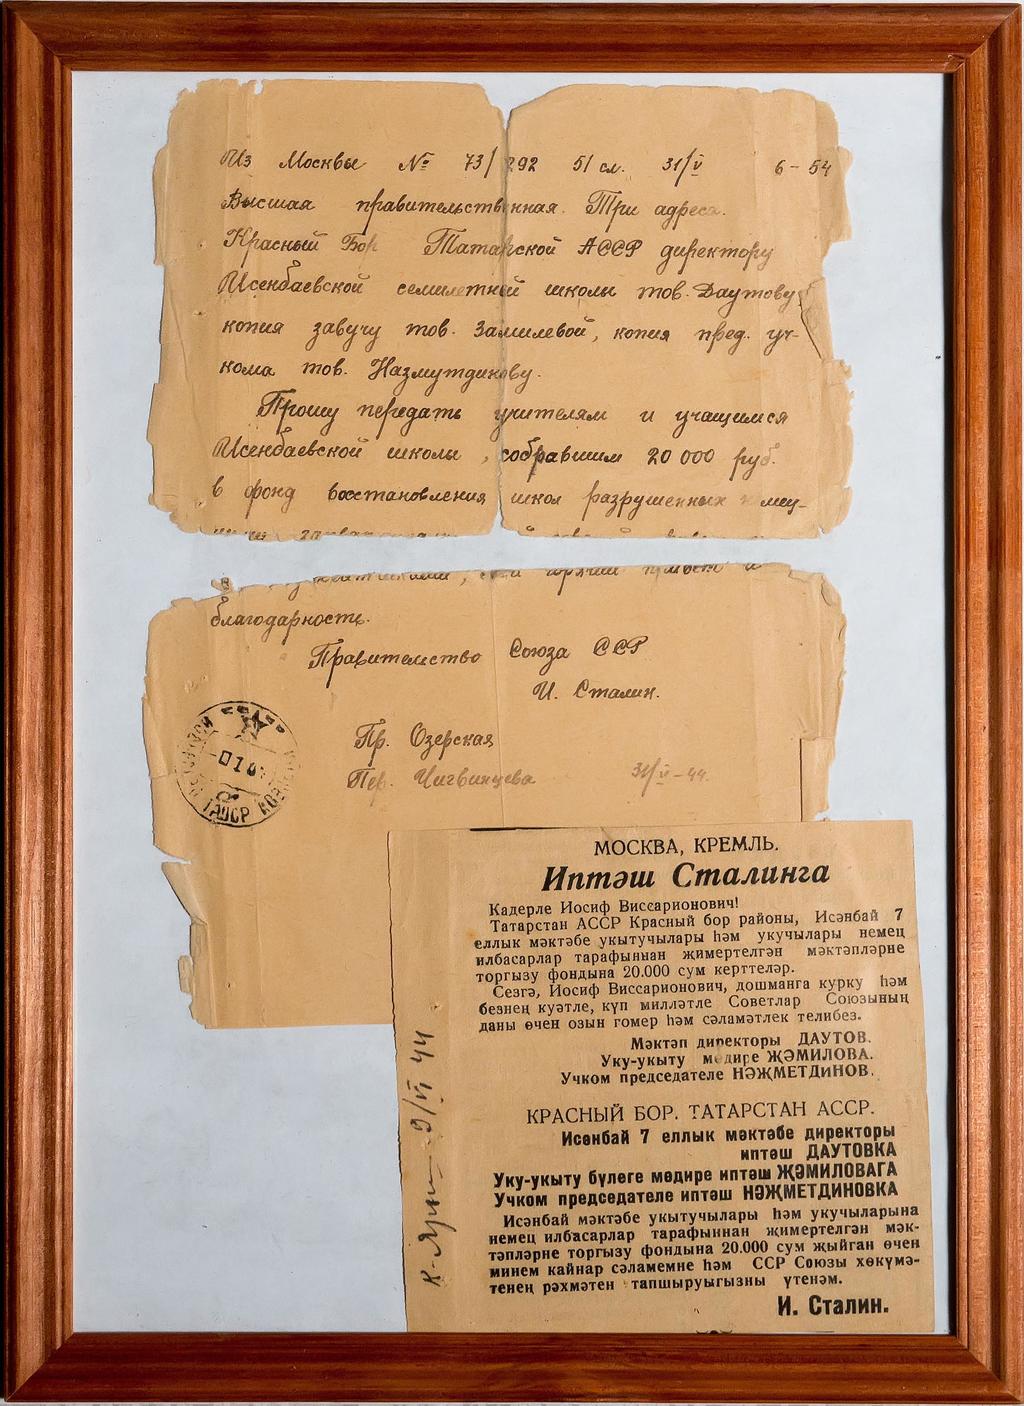 Из Москвы № 73/292 51 сл. 31/V 6-54
Высшая правительственная. Три адреса.
Красный Бор Татарской АССР директору
Исенбаевской семилетней школы тов. Даутову
копия завучу тов. Замилевой, копия пред. уч-
кома тов. Назмутдинову.
Прошу передать учителям и учащимся
Исенбаевской школы, собравшим 20 000 руб.
в фонд восстановления школ разрушенных
мой горячий привет и
благодарность.
Правительство Союза ССР
И. Сталин.
Пр. Озерская
Пер. Чигвинцева 31/V-44.
ТАССР
МОСКВА, КРЕМЛЬ.
Иптәш Сталинга
Кадерле Иосиф Виссарионович!
Татарстан АССР Красный бор районы, Исәнбай 7
еллык мәктәбе укытучылары һәм укучылары немец
илбасарлар тарафыннан җимертелгән мәктәпләрне
торгызу фондына 20.000 сум керттеләр.
Сезгә, Иосиф Виссарионович, дошманга курку һәм
безнең куәтле, күп милләтле Советлар Союзының
даны өчен озын гомер һәм сәламәтлек телибез.
Мәктәп директоры ДАУТОВ.
Уку-укыту мөдире ҖӘМИЛОВА.
Учком председателе НӘҖМЕТДИНОВ.
КРАСНЫЙ БОР. ТАТАРСТАН АССР.
Исәнбай 7 еллык мәктәбе директоры
иптәш ДАУТОВКА
Уку-укыту бүлеге мөдире иптәш ҖӘМИЛОВАГА
Учком председателе иптәш НӘҖМЕТДИНОВКА
Исәнбай мәктәбе укытучылары һәм укучыларына
немец илбасарлар тарафыннан җимертелгән мәк-
тәпләрне торгызу фондына 20.000 сум җыйган өчен
минем кайнар сәламемне һәм ССР Союзы хөкүмә-
тенең рәхмәтен тапшыруыгызны үтенәм.
И. Сталин.
9/VI 44